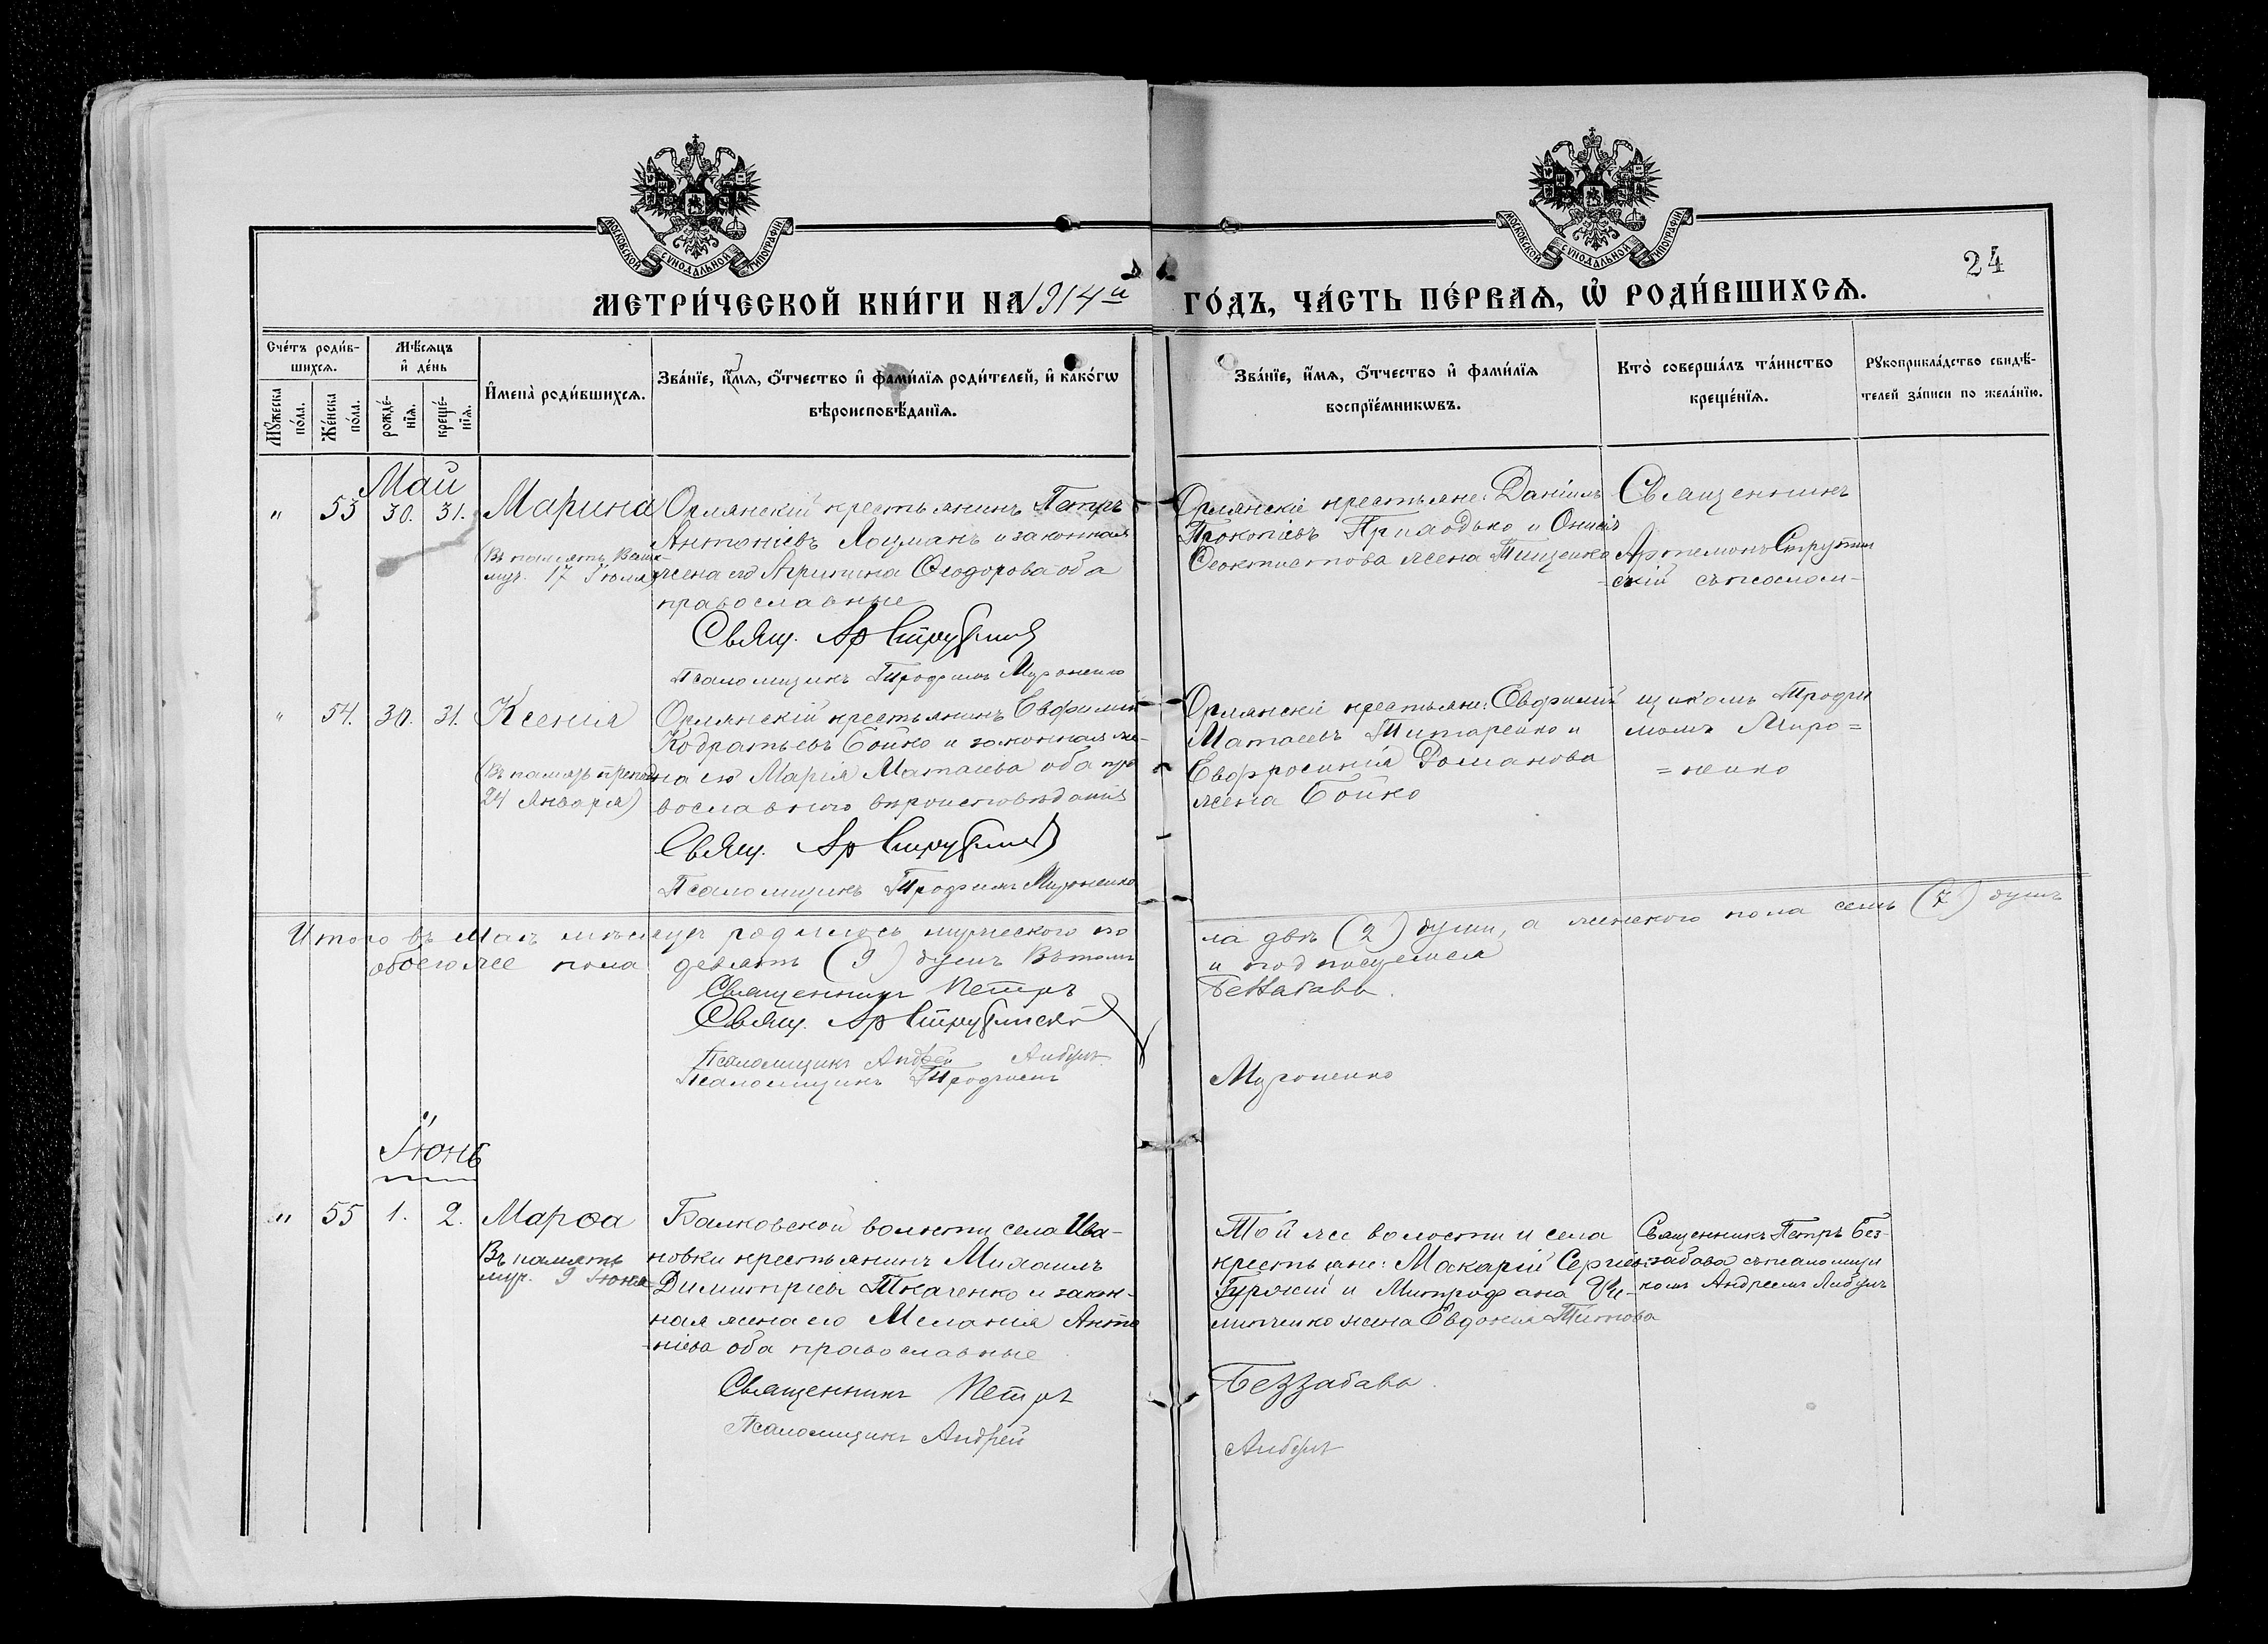 МОСКОВСКОЙ СУНОДАЛЬНОЙ ТИПОГРАФІИ
МОСКОВСКОЙ СУНОДАЛЬНОЙ ТИПОГРАФІИ
24
МЕТРИ́ЧЕСКОЙ КНИ́ГИ НА 1914й ГО́ДЪ, ЧА́СТЬ ПЕ́РВАѦ, Ѡ РОДИ́ВШИХСѦ.
Сче́тъ роди́в-
шихсѧ.
Мꙋ́жеска
по́ла.
Же́нска
по́ла.
Мѣ́сѧцъ
и҆ де́нь
рожде́-
нїѧ.
креще́-
нїѧ.
И҆мена̀ роди́вшихсѧ.
Зва́нїе, и҆́мѧ, ѻ҆́тчество и҆ фами́лїѧ роди́телей, и҆ како́гѡ
вѣроисповѣ́данїѧ.
Зва́нїе, и҆́мѧ, ѻ҆́тчество и҆ фами́лїѧ
воспрїе́мникѡвъ.
Кто̀ соверша́лъ та́инство
креще́нїѧ.
Рꙋкоприкла́дство свидѣ́-
телей за́писи по жела́нїю.
Май
" 53 30. 31. Марина
(Въ память Велик
муч. 17 Іюля)
Орлянскій крестьянинъ Петръ
Антоніевъ Лоцманъ и законная
жена его Агрипина Ѳеодорова оба
православные
Свящ. Ар Струтинс
Псаломщикъ Трофимъ Мироненко
Орлянскіе крестьяне: Даніилъ
Прокопіевъ Приходько и
Ѳеоктистова жена Тищенко
Священникъ
Артемонъ
скій съ псалом-
" 54. 30. 31. Ксенія
(Въ память препод
24 Января)
Орлянскій крестьянинъ Евфимій
Кодратьевъ Бойко и законная же-
на его Марія Матѳіева оба пра
вославнаго вѣроисповѣданія
Свящ. Ар
Псаломщикъ Трофимъ Мироненко
Орлянскіе крестьяне: Евфимій
Матѳіевъ Титаренко и
Евфросинія Романова
жена Бойко
щикомъ Трофи
момъ Миро=
=ненко
Итого въ Маѣ мѣсяцѣ родилось мужескаго по
ла двѣ (2) души, а женскаго пола семь (7) душъ
обоего же пола девять (9) душъ Въ томъ
и подписуемся
Священникъ Петръ Беззабава.
Свящ. Ар
Псаломщикъ Андрей
Псаломщикъ Трофимъ Мироненко
Іюнь
" 55 1. 2. Марѳа
Въ память
муч. 9 Іюня
Балковской волости села Ива-
новки крестьянинъ Михаилъ
Димитріевъ Ткаченко и закон-
ная жена его Меланія Анто
-ніева оба православные
Священникъ Петръ Беззабава.
Псаломщикъ Андрей
Той же волости и села
крестьяне: Макарій Сергіевъ
Гуржій и Митрофана Фи-
липченко жена Евдокія Титова
Священникъ Петръ Без-
забава съ псаломщи
комъ Андреемъ